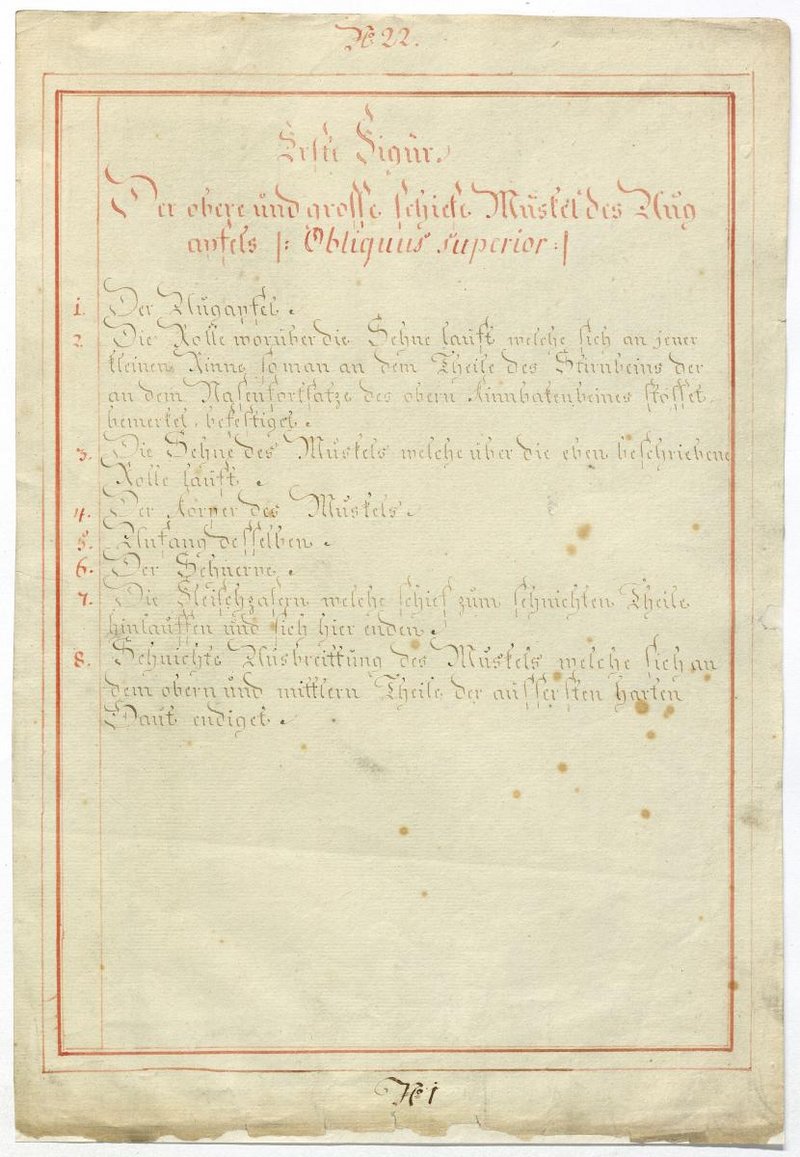 No 22.
Erste Figur.
Der obere und grosse schiefe Muskel des Aug
apfels |: Obliquus superior :|
1. Der Augapfel.
2. Die Rolle worüber die Sehne lauft welche sich an jener
kleinen Rinne so man an dem Theile des Stirnbeins der
an dem Nasenfortsatze des obern Kinnbakenbeines stosset
bemerket, befestiget.
3. Die Sehne des Muskels welche über die eben beschriebene
Rolle lauft.
4. Der Körper des Muskels.
5. Anfang desselben.
6. Der Sehnerve.
7. Die Fleischzasern welche schief zum sehnichten Theile
hinlauffen und sich hier enden.
8. Sehnichte Ausbreittung des Muskels welche sich an
dem obern und mittlern Theile der äussersten harten
Haut endiget.
No 1